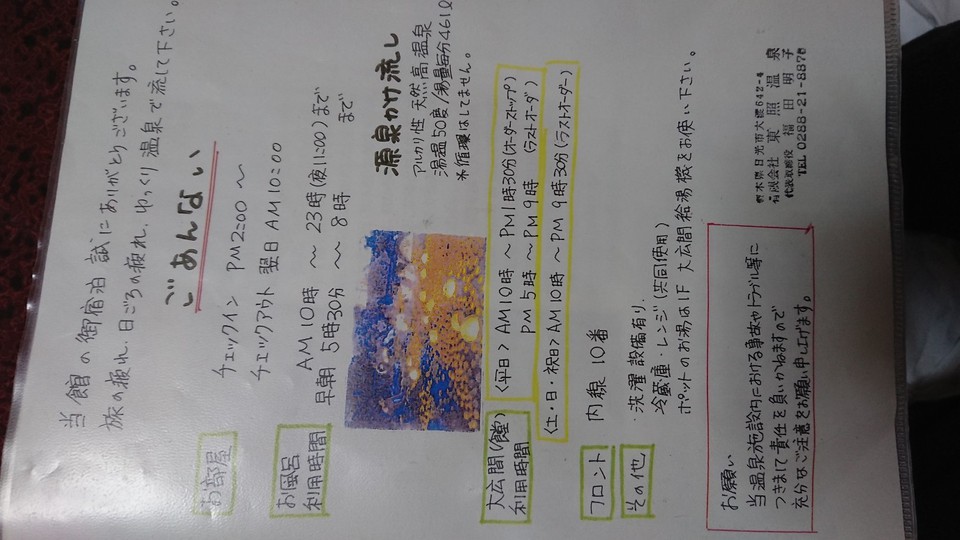 当館の御宿泊 誠にありがとうございます。
旅の疲れ、日ごろの疲れ、ゆっくり温泉で流して下さい。
ごあんない
お部屋
チェックイン PM2:00 〜
チェックアウト 翌日 AM10:00
お風呂
利用時間
AM10時 〜 23時(夜11:00)まで
早朝 5時30分 〜 8時 まで
源泉かけ流し
アルカリ性 天然高温泉
湯温50度/湯量毎分461ℓ
※循環はしてません。
大広間(食堂)
利用時間
<平日> AM10時 〜PM1時30分(オーダーストップ)
PM5時〜PM9時 (ラストオーダ)
<土・日・祝日> AM10時 〜PM 9時30分(ラストオーダー)
フロント
内線 10番
その他
・洗濯設備有り.
冷蔵庫・レンジ(共同使用)
ポットのお湯は1F 大広間 給湯機をお使い下さい。
お願い
当温泉施設内における事故やトラブル等に
つきまして責任を負いかねますので
充分なご注意をお願い申し上げます。
栃木県日光市大渡642-4
有限会社 東照温泉
代表取締役 福田明子
TEL 0288-21-8876